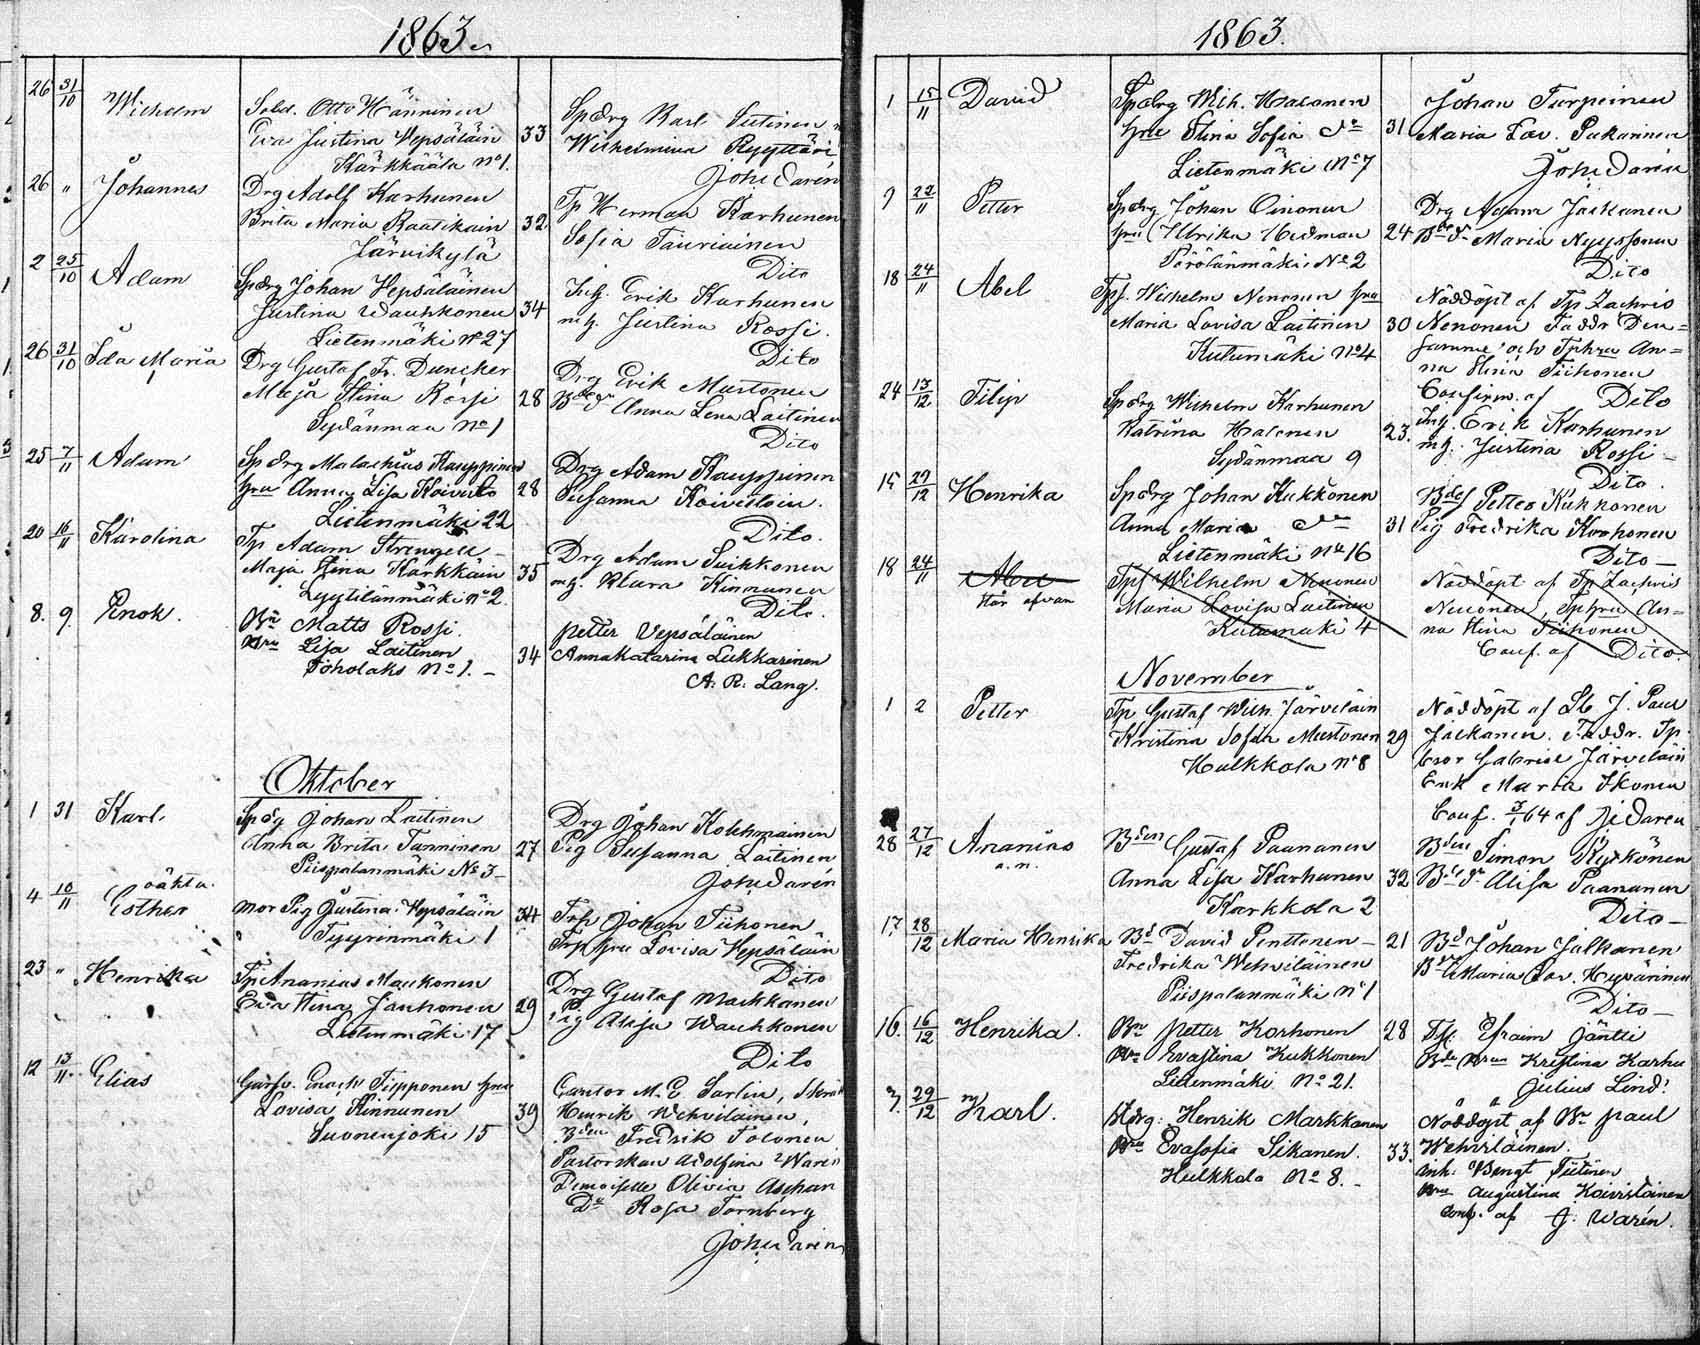 1863
26 31/10 Wilhelm Sold. Otto Hänninen
Eva Justina Vepsäläin 33
Kärkkäälä No 1.
Spdrg Karl Sutinen
Wilhelmina Ryyttäri
Joh: Varén
26 " Johannes Drg Adolf Karhunen
Brita Maria Raatikain 32
Järvikylä
Tp Herman Karhunen
Sofia Tauriainen
Dito
2 25/10 Adam Spdrg Johan Vepsäläinen
Justina Vauhkonen 34
Lietenmäki No 27
Inh. Erik Karhunen
m. h. Justina Rossi.
Dito
26 31/10 Ida Maria Drg Gustaf Fr. Duncker
Maja Stina Rossi 28
Sydänmaa No 1
Drg Erik Mustonen
Anna Lena Laitinen
Dito
25 7/11 Adam Spdrg Malachias Kauppinen
hru Anna Lisa Koivisto 28
Lietenmäki 22
Drg Adam Kauppinen
Susanna Koivistoin.
Dito.
20 16/11 Karolina Tp Adam Strengell
Maja Stina Karkkäin 35
Lyytilänmäki No 2.
Drg Adam Suikkonen
m. h. Klara Kinnunen
Dito.
8. 9. Enok. Bn Matts Rossi.
Hru Lisa Laitinen 34
Toholaks No 1. –
Petter Vepsäläinen
Anna Katarina Lukkarinen
A. R. Lang.
Oktober
1 31 Karl. Spdg Johan Laitinen
Anna Brita Tanninen 27
Piispalanmäki No 3
Drg Johan Kolehmainen
Pig Susanna Laitinen
Joh: Varén
4 10/11 oäkta
Esther mor Pig Justina Vepsäläin 34
Tyyrinmäki 1
Trp Johan Tiihonen
Trp hru Lovisa Vepsäläin
Dito
23 " Henrika Tp Ananias Maukonen
Eva Stina Jauhonen 29
Lietenmäki 17
Drg Gustaf Markkanen
Pig Alisa Wauhkonen
Dito
12 13/11 Elias Enoch Tepponen hru
Lovisa Kinnunen 39
Suonenjoki 15
Cantor M. E. Sarlin,
Henrik Wehviläinen,
Bden Fredrik Tolonen
Pastorskan Adolfina Warén
Demoiselle Olivia Aschan
Do Rosa Tornberg
Joh: Varén
1863.
1 15/11 David Spdrg Wilh. Halonen
hru Stina Sofia Do 31
Lietenmäki No 7
Johan Turpeinen
Maria Lov. Pukarinen
Joh: Varén
9 22/11 Petter Spdrg Johan Oinonen
hru Ulrika Hedman 24
Pörölänmäki No 2
Drg Adam Jäskänen
Maria Nyyssonen
Dito
18 24/11 Abel Tpf. Wilhelm Nenonen hru
Maria Lovisa Laitinen 30
Kutumäki No 4
Nöddöpt af Tp Zachris
Nenonen Faddr Den=
samme och Tphru An=
na Stina Tiihonen
Confirm. af Dito
24 13/12 Filip Spdrg Wilhelm Karhunen
Katrina Halonen 23.
Sydänmaa 9
Inh. Erik Karhunen
m. h. Justina Rossi –
Dito.
15 27/12 Henrika Spdrg Johan Kukkonen
Anna Maria Do 31
Lietenmäki No 16
Petter Kukkonen
Pig Fredrika Korhonen
Dito –
18 24/11 Abel
står ofvan
Tpf Wilhelm Nenonen
Maria Lovisa Laitinen
Kutumäki 4
Nöddöpt af Tp Zachris
Nenonen, Tphru An=
na Stina Tiihonen
Conf. af Dito.
November
1 2 Petter Tp Gustaf Wilh. Järveläin
Kristina Sofia Mustonen 29
Hulkkola No 8
Nöddöpt af J. Paul
Jäskänen. Faddr. Tp
Gabriel Järveläin
Enk Maria Ikonen
Conf. 3/1 64 af J. Varén
28 27/12 Ananias
a. n.
Bden Gustaf Paananen
Anna Lisa Karhunen 32
Karkkola 2
Bden Simon Kyrkönen
Alisa Paananen
Dito –
17. 28/12 Maria Henrika Bd David Penttonen – 21
Fredrika Wehviläinen
Piispalanmäki No 1
Bd Johan Jalkanen
Maria Lov. Hypärinen
Dito –
16. 16/12 Henrika. Bn Petter Korhonen 28
Hru Eva Stina Kukkonen
Lietenmäki No 21.
Tp. Efraim Jäntti
Kristina Karhu
Julius Lind.
3. 29/12 Karl. Henrik Markkanen
Hru Eva Sofia Sikanen. 33.
Hulkkola No 8. –
Nöddöpt af Bn Paul
Wehviläinen.
Inh: Bengt Tiitinen
Hru Augustina Koivistoinen
Conf. af J. Warén.